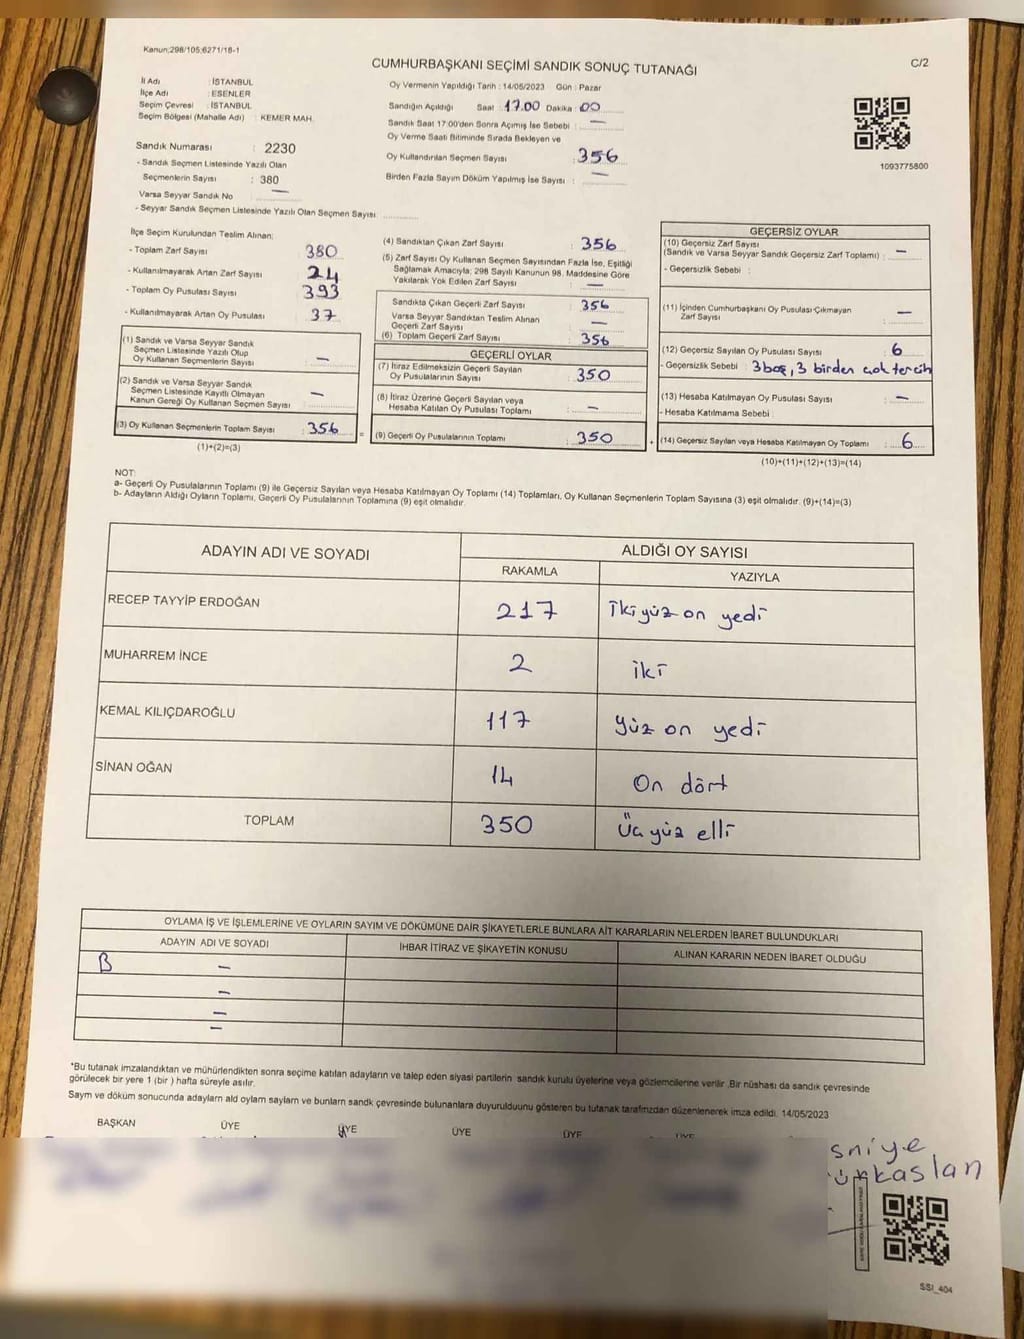 Kanun;298/105;6271/18-1
CUMHURBAŞKANI SEÇİMİ SANDIK SONUÇ TUTANAĞI
C/2
İl Adı : İSTANBUL
İlçe Adı : ESENLER
Seçim Çevresi : İSTANBUL
Seçim Bölgesi (Mahalle Adı) : KEMER MAH.
Sandık Numarası : 2230
- Sandık Seçmen Listesinde Yazılı Olan
Seçmenlerin Sayısı : 380
Varsa Seyyar Sandık No —
- Seyyar Sandık Seçmen Listesinde Yazılı Olan Seçmen Sayısı
Oy Vermenin Yapıldığı Tarih : 14/05/2023 Gün : Pazar
Sandığın Açıldığı Saat : 17.00 Dakika : 00
Sandık Saat 17:00'den Sonra Açımış İse Sebebi : —
Oy Verme Saati Bitiminde Sırada Bekleyen ve
Oy Kullandırılan Seçmen Sayısı : 356
Birden Fazla Sayım Döküm Yapılmış İse Sayısı : —
1093775800
İlçe Seçim Kurulundan Teslim Alınan;
- Toplam Zarf Sayısı 380
- Kullanılmayarak Artan Zarf Sayısı 24
- Toplam Oy Pusulası Sayısı 393
- Kullanılmayarak Artan Oy Pusulası 37
(1) Sandık ve Varsa Seyyar Sandık
Seçmen Listesinde Yazılı Olup
Oy Kullanan Seçmenlerin Sayısı : —
(2) Sandık ve Varsa Seyyar Sandık
Seçmen Listesinde Kayıtlı Olmayan
Kanun Gereği Oy Kullanan Seçmen Sayısı : —
(3) Oy Kullanan Seçmenlerin Toplam Sayısı : 356
(1)+(2)=(3)
(4) Sandıktan Çıkan Zarf Sayısı : 356
(5) Zarf Sayısı Oy Kullanan Seçmen Sayısından Fazla İse, Eşitliği
Sağlamak Amacıyla; 298 Sayılı Kanunun 98. Maddesine Göre
Yakılarak Yok Edilen Zarf Sayısı : —
Sandıkta Çıkan Geçerli Zarf Sayısı : 356
Varsa Seyyar Sandıktan Teslim Alınan
Geçerli Zarf Sayısı : —
(6) Toplam Geçerli Zarf Sayısı : 356
GEÇERLİ OYLAR
(7) İtiraz Edilmeksizin Geçerli Sayılan
Oy Pusulalarının Sayısı : 350
(8) İtiraz Üzerine Geçerli Sayılan veya
Hesaba Katılan Oy Pusulası Toplamı : —
(9) Geçerli Oy Pusulalarının Toplamı : 350
GEÇERSİZ OYLAR
(10) Geçersiz Zarf Sayısı
(Sandık ve Varsa Seyyar Sandık Geçersiz Zarf Toplamı) : —
- Geçersizlik Sebebi :
(11) İçinden Cumhurbaşkanı Oy Pusulası Çıkmayan
Zarf Sayısı : —
(12) Geçersiz Sayılan Oy Pusulası Sayısı : 6
- Geçersizlik Sebebi : 3 boş, 3 birden çok tercih
(13) Hesaba Katılmayan Oy Pusulası Sayısı : —
- Hesaba Katılmama Sebebi :
(14) Geçersiz Sayılan veya Hesaba Katılmayan Oy Toplamı : 6
(10)+(11)+(12)+(13)=(14)
NOT:
a- Geçerli Oy Pusulalarının Toplamı (9) ile Geçersiz Sayılan veya Hesaba Katılmayan Oy Toplamı (14) Toplamları, Oy Kullanan Seçmenlerin Toplam Sayısına (3) eşit olmalıdır. (9)+(14)=(3)
b- Adayların Aldığı Oyların Toplamı, Geçerli Oy Pusulalarının Toplamına (9) eşit olmalıdır.
ADAYIN ADI VE SOYADI ALDIĞI OY SAYISI
RAKAMLA YAZIYLA
RECEP TAYYİP ERDOĞAN 217 İkiyüz on yedi
MUHARREM İNCE 2 iki
KEMAL KILIÇDAROĞLU 117 Yüz on yedi
SİNAN OĞAN 14 On dört
TOPLAM 350 Üçyüz elli
OYLAMA İŞ VE İŞLEMLERİNE VE OYLARIN SAYIM VE DÖKÜMÜNE DAİR ŞİKAYETLERLE BUNLARA AİT KARARLARIN NELERDEN İBARET BULUNDUKLARI
ADAYIN ADI VE SOYADI İHBAR İTİRAZ VE ŞİKAYETİN KONUSU ALINAN KARARIN NEDEN İBARET OLDUĞU
B —
—
—
—
*Bu tutanak imzalandıktan ve mühürlendikten sonra seçime katılan adayların ve talep eden siyasi partilerin sandık kurulu üyelerine veya gözlemcilerine verilir .Bir nüshası da sandık çevresinde
görülecek bir yere 1 (bir ) hafta süreyle asılır.
Saym ve döküm sonucunda adaylarn ald oylarn saylarn ve bunlarn sandk çevresinde bulunanlara duyurulduunu gösteren bu tutanak tarafmzdan düzenlenerek imza edildi. 14/05/2023
BAŞKAN ÜYE ÜYE ÜYE ÜYE ÜYE
sniye
ürkaslan
SSI_404